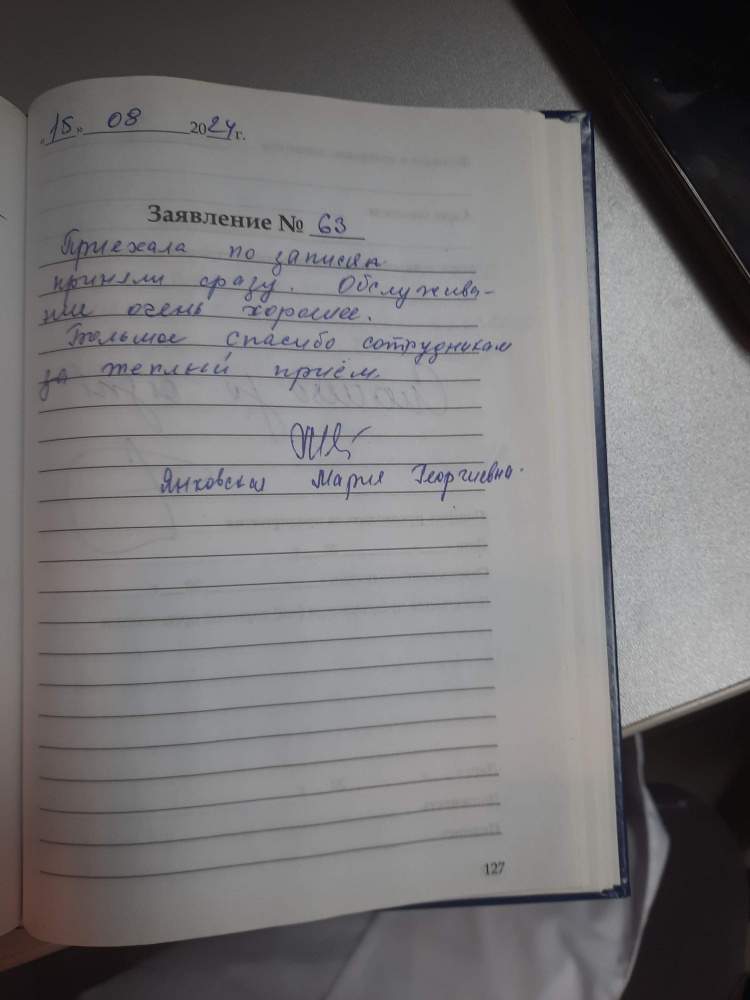 «15» 08 2024 г.
Заявление № 63
Приехала по записям
приняли сразу. Обслужива-
ние очень хорошее.
Большое спасибо сотрудникам
за теплый приём.
Янковская Мария Георгиевна.
127